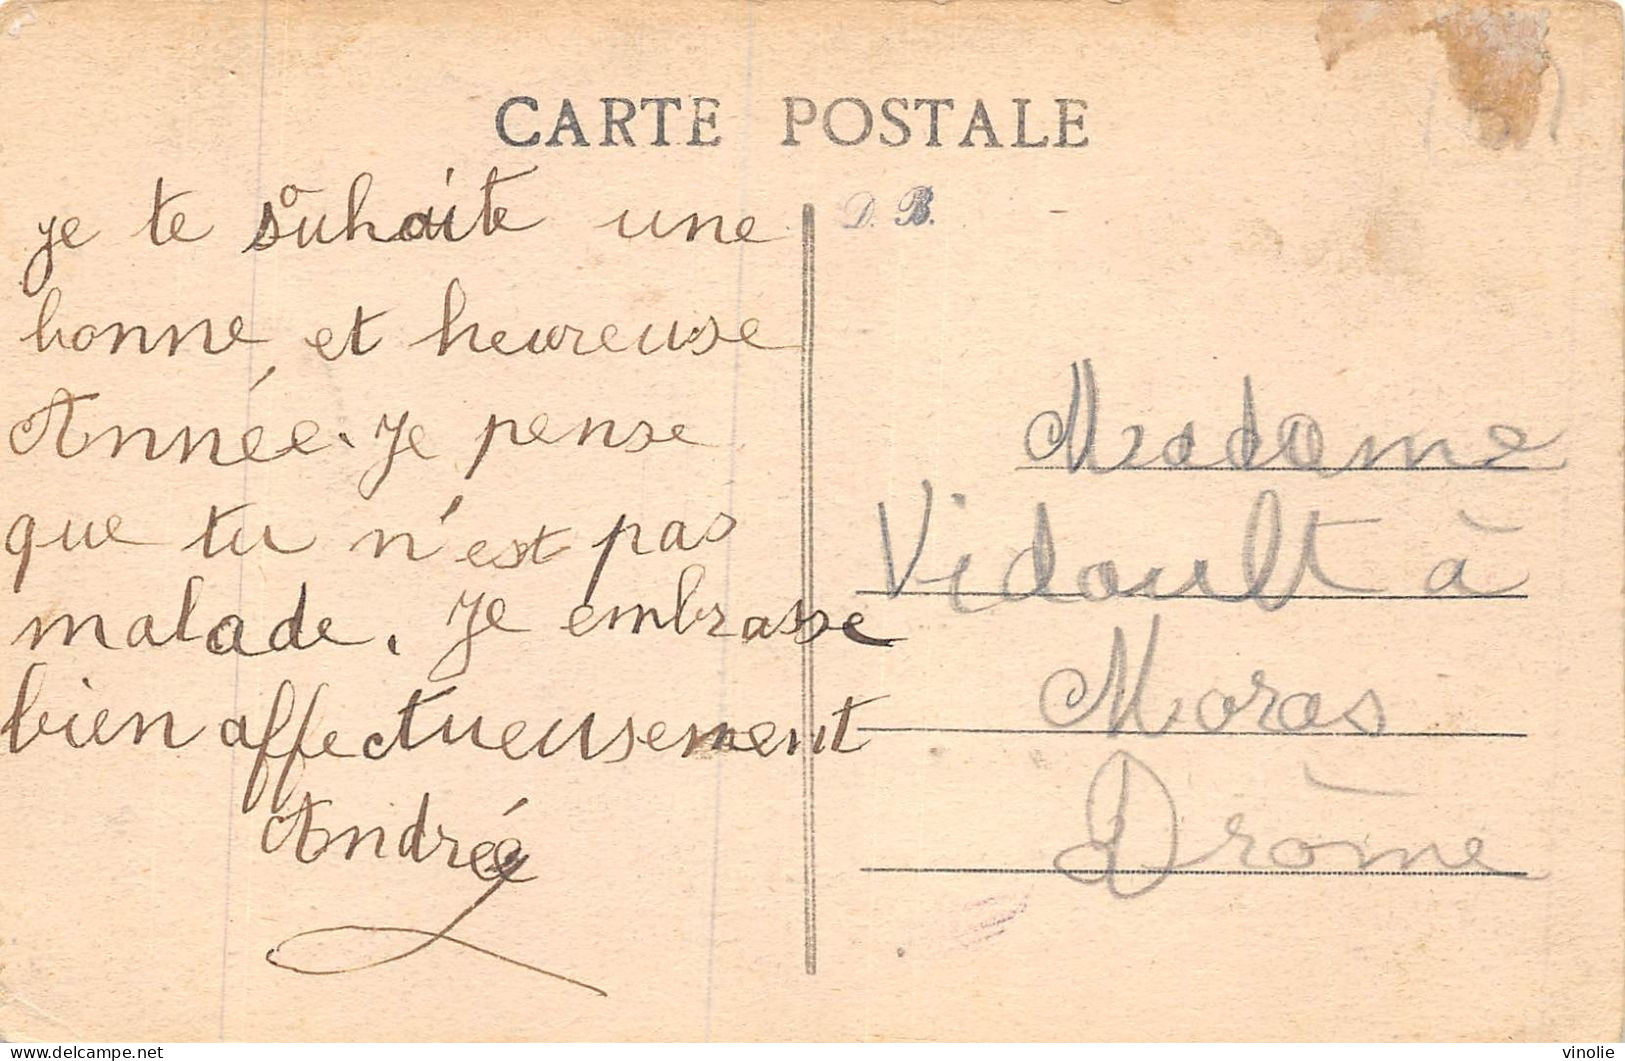 CARTE POSTALE
D. B.
je te souhaite une
bonne et heureuse
Année. Je pense
que tu n'est pas
malade. Je embrasse
bien affectueusement
Andrée
Madame
Vidoult à
Moras
Drôme
delcampe.net
vinolie